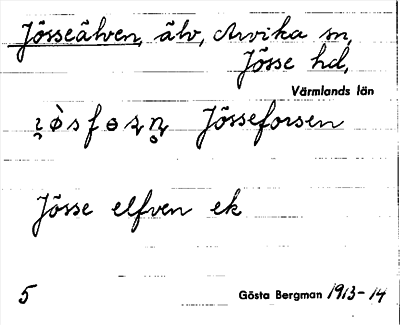 Jösseälven, älv, Arvika sn,
Jösse hd,
Värmlands län
Jösseforsen
Jösse elfven ek
5 Gösta Bergman 1913-14